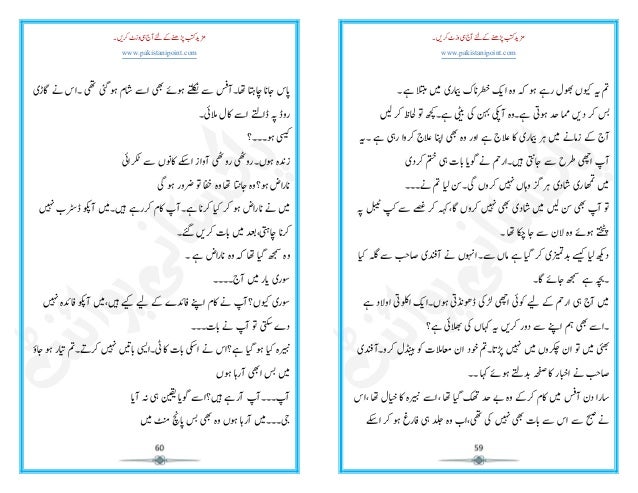 مزید کتب پڑھنے کے لئے آج ہی وزٹ کریں۔
www.pakistanipoint.com
تم یہ کیوں بھول رہے ہو کہ وہ ایک خطرناک بیماری میں مبتلا ہے۔
بس کر دیں مما حد ہوتی ہے۔وہ آپکی بہن کی بیٹی ہے۔کچھ تو لحاظ کر لیں
آج کے زمانے میں ہر بیماری کا علاج ہے اور وہ بھی اپنا علاج کروا رہی ہے۔یہ
آپ اچھی طرح سے جانتی ہیں۔ارحم نے گویا بات ہی ختم کر دی
میں تمھاری شادی ہر گز وہاں نہیں کروں گی۔سن لیا تم نے۔۔۔
تو آپ بھی سن لیں میں شادی بھی نہیں کروں گا،کہہ کر غصے سے کپ ٹیبل پہ
پٹختے ہوئے وہ لان سے جا چکا تھا۔
دیکھ لیا کیسے بدتمیزی کر گیا ہے ماں سے۔انہوں نے آفندی صاحب سے گلہ کیا
۔بچہ ہے سمجھ جائے گا۔
میں آج ہی ارحم کے لیے کوئی اچھی لڑکی ڈھونڈتی ہوں۔ایک اکلوتی اولاد ہے
۔اسے بھی ہم اپنے سے دور کریں یہ کہاں کی بھلائی ہے؟
بھئی میں تو ان چکروں میں نہیں پڑتا۔تم خود ان معاملات کو ہینڈل کرو۔آفندی
صاحب نے اخبار کا صفحہ بدلتے ہوئے کہا۔۔
سارا دن آفس میں کام کرکے وہ بے حد تھک گیا تھا ،اسے نبیرہ کا خیال تھا،اس
نے صبح سے اس سے بات بھی نہیں کی تھی،اب وہ جلد ہی فارغ ہو کر اسکے
59
مزید کتب پڑھنے کے لئے آج ہی وزٹ کریں۔
www.pakistanipoint.com
پاس جانا چاہتا تھا۔آفس سے نکلتے ہوئے بھی اسے شام ہو گئی تھی ۔اس نے گاڑی
روڈ پہ ڈالتے اسے کال ملائی۔
کیسی ہو۔۔۔؟
زندہ ہوں۔روٹھی روٹھی آواز اسکے کانوں سے ٹکرائی
ناراض ہو؟وہ جانتا تھا وہ خفا تو ضرور ہو گی
میں نے ناراض ہو کر کیا کرنا ہے۔آپ کام کررہے ہیں۔میں آپکو ڈسٹرب نہیں
کرنا چاہتی،بعد میں بات کریں گے۔
وہ سمجھ گیا تھا کہ وہ ناراض ہے۔
سوری یار میں آج۔۔۔۔
سوری کیوں؟آپ نے کام اپنے فائدے کے لیے کیے ہیں،میں آپکو فائدہ نہیں
دے سکتی تو آپ نے بات۔۔۔
نبیرہ کیا ہو گیا ہے؟اس نے اسکی بات کاٹی۔ایسی باتیں نہیں کرتے۔تم تیار ہو جاؤ
میں بس ابھی آرہا ہوں
آپ۔۔۔آپ آرہے ہیں؟اسے گویا یقین ہی نہ آیا
جی۔۔۔میں آرہا ہوں وہ بھی بس پانچ منٹ میں
60